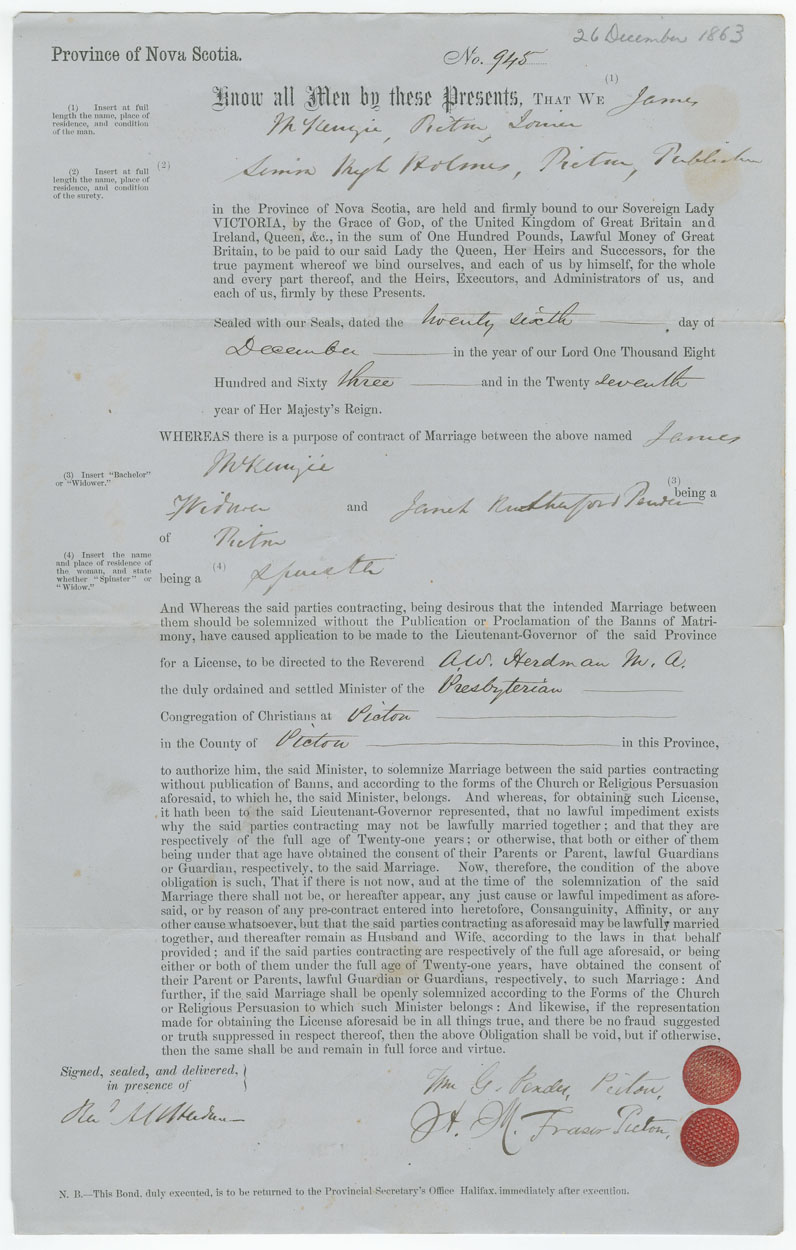 26 December 1863
Province of Nova Scotia.
No. 945
Know all Men by these Presents, THAT WE (1) James
McKenzie, Pictou, Joiner
(1) Insert at full
length the name, place of
residence, and condition
of the man.
(2) Simon Hugh Holmes, Pictou, Publisher
(2) Insert at full
length the name, place of
residence, and condition
of the surety.
in the Province of Nova Scotia, are held and firmly bound to our Sovereign Lady
VICTORIA, by the Grace of GOD, of the United Kingdom of Great Britain and
Ireland, Queen, &c., in the sum of One Hundred Pounds, Lawful Money of Great
Britain, to be paid to our said Lady the Queen, Her Heirs and Successors, for the
true payment whereof we bind ourselves, and each of us by himself, for the whole
and every part thereof, and the Heirs, Executors, and Administrators of us, and
each of us, firmly by these Presents.
Sealed with our Seals, dated the twenty sixth day of
December in the year of our Lord One Thousand Eight
Hundred and Sixty three and in the Twenty seventh
year of Her Majesty's Reign.
WHEREAS there is a purpose of contract of Marriage between the above named James
McKenzie
(3) being a
(3) Insert "Bachelor"
or "Widower."
Widower and Janet Rutherford Pender
of Pictou
(4) Insert the name
and place of residence of
the woman, and state
whether "Spinster" or
"Widow."
being a (4) Spinster
And Whereas the said parties contracting, being desirous that the intended Marriage between
them should be solemnized without the Publication or Proclamation of the Banns of Matri-
mony, have caused application to be made to the Lieutenant-Governor of the said Province
for a License, to be directed to the Reverend A.W. Herdman M. A.
the duly ordained and settled Minister of the Presbyterian
Congregation of Christians at Picton
in the County of Picton in this Province,
to authorize him, the said Minister, to solemnize Marriage between the said parties contracting
without publication of Banns, and according to the forms of the Church or Religious Persuasion
aforesaid, to which he, the said Minister, belongs. And whereas, for obtaining such License,
it hath been to the said Lieutenant-Governor represented, that no lawful impediment exists
why the said parties contracting may not be lawfully married together; and that they are
respectively of the full age of Twenty-one years; or otherwise, that both or either of them
being under that age have obtained the consent of their Parents or Parent, lawful Guardians
or Guardian, respectively, to the said Marriage. Now, therefore, the condition of the above
obligation is such, That if there is not now, and at the time of the solemnization of the said
Marriage there shall not be, or hereafter appear, any just cause or lawful impediment as afore-
said, or by reason of any pre-contract entered into heretofore, Consanguinity, Affinity, or any
other cause whatsoever, but that the said parties contracting as aforesaid may be lawfully married
together, and thereafter remain as Husband and Wife, according to the laws in that behalf
provided; and if the said parties contracting are respectively of the full age aforesaid, or being
either or both of them under the full age of Twenty-one years, have obtained the consent of
their Parent or Parents, lawful Guardian or Guardians, respectively, to such Marriage: And
further, if the said Marriage shall be openly solemnized according to the Forms of the Church
or Religious Persuasion to which such Minister belongs: And likewise, if the representation
made for obtaining the License aforesaid be in all things true, and there be no fraud suggested
or truth suppressed in respect thereof, then the above Obligation shall be void, but if otherwise,
then the same shall be and remain in full force and virtue.
Signed, sealed, and delivered,
in presence of
Wm G. Pender, Picton.
Revd A W Herdman
H. M. Fraser Picton,
N. B.—This Bond, duly executed, is to be returned to the Provincial Secretary's Office Halifax, immediately after execution.